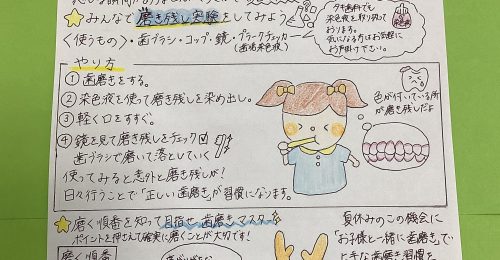 ☆みんなで磨き残し実験をしてみよう
〈使うもの〉・歯ブラシ・コップ・鏡・プラークチェッカー
(歯垢染色液)
タキ歯科でも
染色液を取り扱って
おります。
気になる方はお気軽に
お声掛け下さい。
やり方
①歯磨きをする。
②染色液を使って磨き残しを染め出し。
③軽く口をすすぐ。
④鏡を見て磨き残しをチェック☑
歯ブラシで磨いて落としていく
使ってみると意外と磨き残しが!
日々行うことで「正しい歯磨き」が習慣になります。
色が付いている所
が磨き残しだよ
☆磨く順番を知って目指せ歯磨きマスター
ポイントを押さえて確実に磨くことが大切です!
磨く順番
夏休みのこの機会に
「お子様と一緒に歯磨き」で
歯磨き習慣を